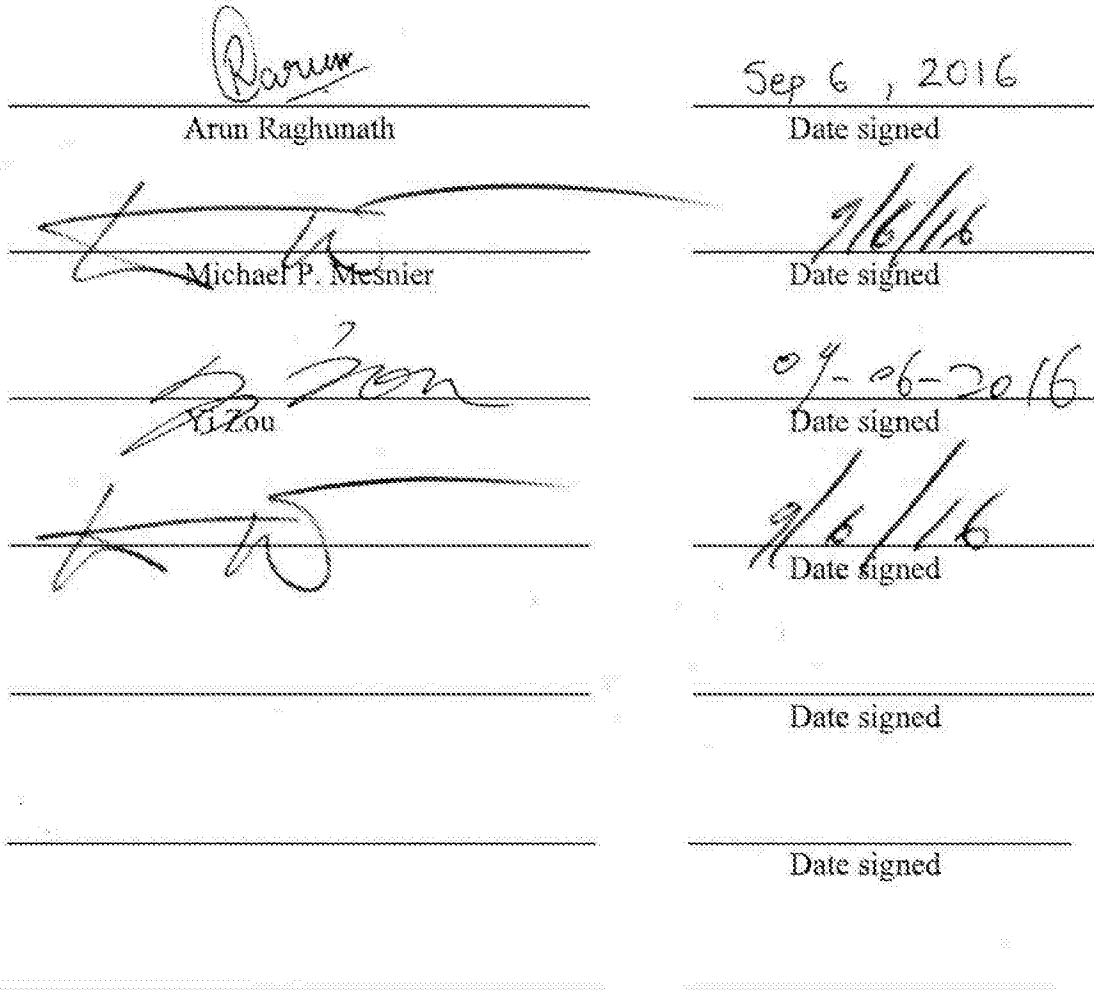 Rarun Sep 6, 2016
Arun Raghunath Date signed
9/6/16
Michael P. Mesnier Date signed
Yi Zou 09-06-2016
Yi Zou Date signed
9/6/16
Date signed
Date signed
Date signed